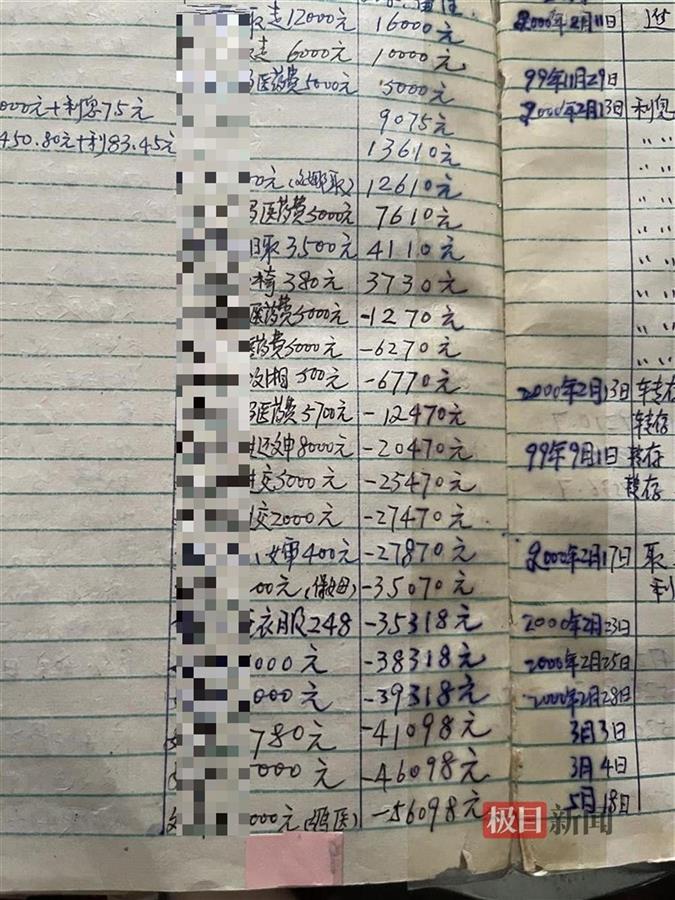 取走12000元 16000元 2000年2月11日
6000元 10000元
医药费5000元 5000元 99年11月29日
000元+利息75元 9075元 2000年2月13日 利息
450.80元+利83.45元 13610元 〃 〃
00元 12610元 〃 〃
医药费5000元 7610元 〃 〃
取3500元 4110元 〃 〃
椅380元 3730元 〃 〃
医药费5000元 -1270元 〃 〃
医药费5000元 -6270元 〃 〃
500元 -6770元 2000年2月13日 转存
医药费5700元 -12470元 转存
8000元 -20470元 99年9月1日 转存
交5000元 -25470元 转存
交2000元 -27470元
400元 -27870元 2000年2月17日 取
00元(保姆) -35070元 利
衣服248 -35318元 2000年2月23日
000元 -38318元 2000年2月25日
000元 -39318元 2000年2月28日
780元 -41098元 3月3日
000元 -46098元 3月4日
000元 -56098元 5月18日
极目新闻